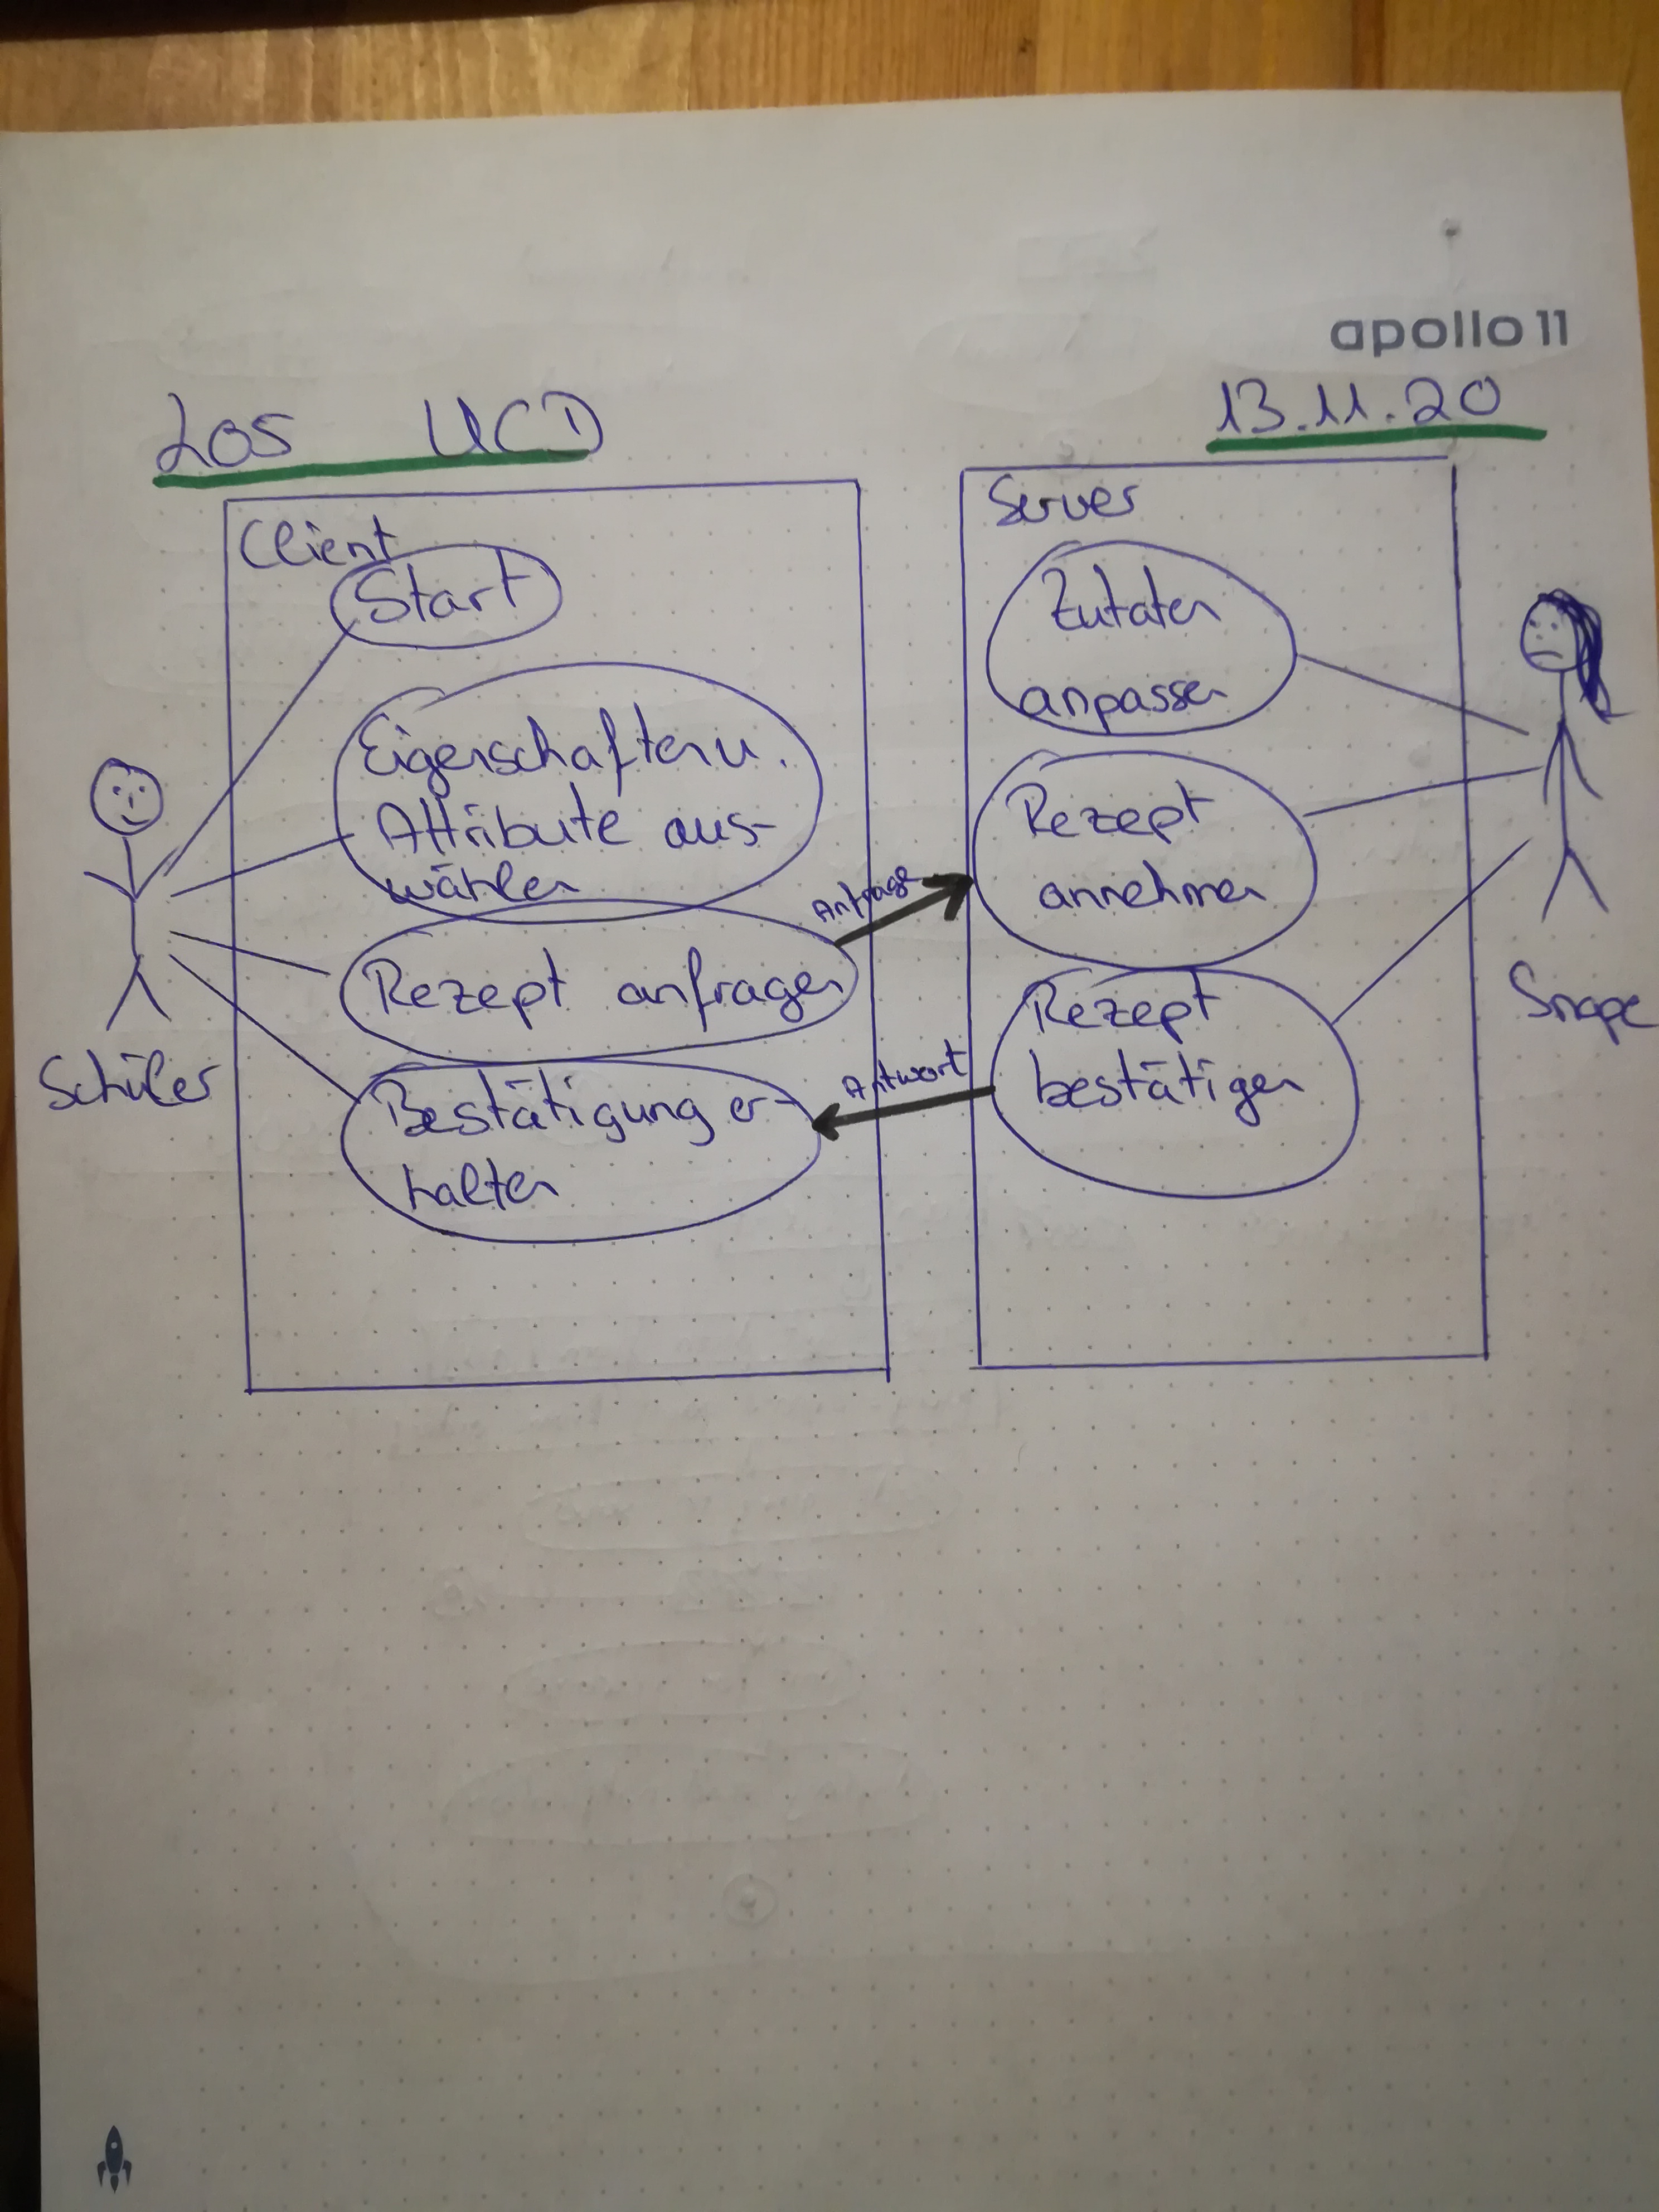 apollo 11
L05 UCD
13.11.20
Client
Start
Eigenschaften u.
Attribute aus-
wählen
Rezept anfragen
Bestätigung er-
halten
Schüler
Anfrage
Antwort
Server
Zutaten
anpassen
Rezept
annehmen
Rezept
bestätigen
Snape